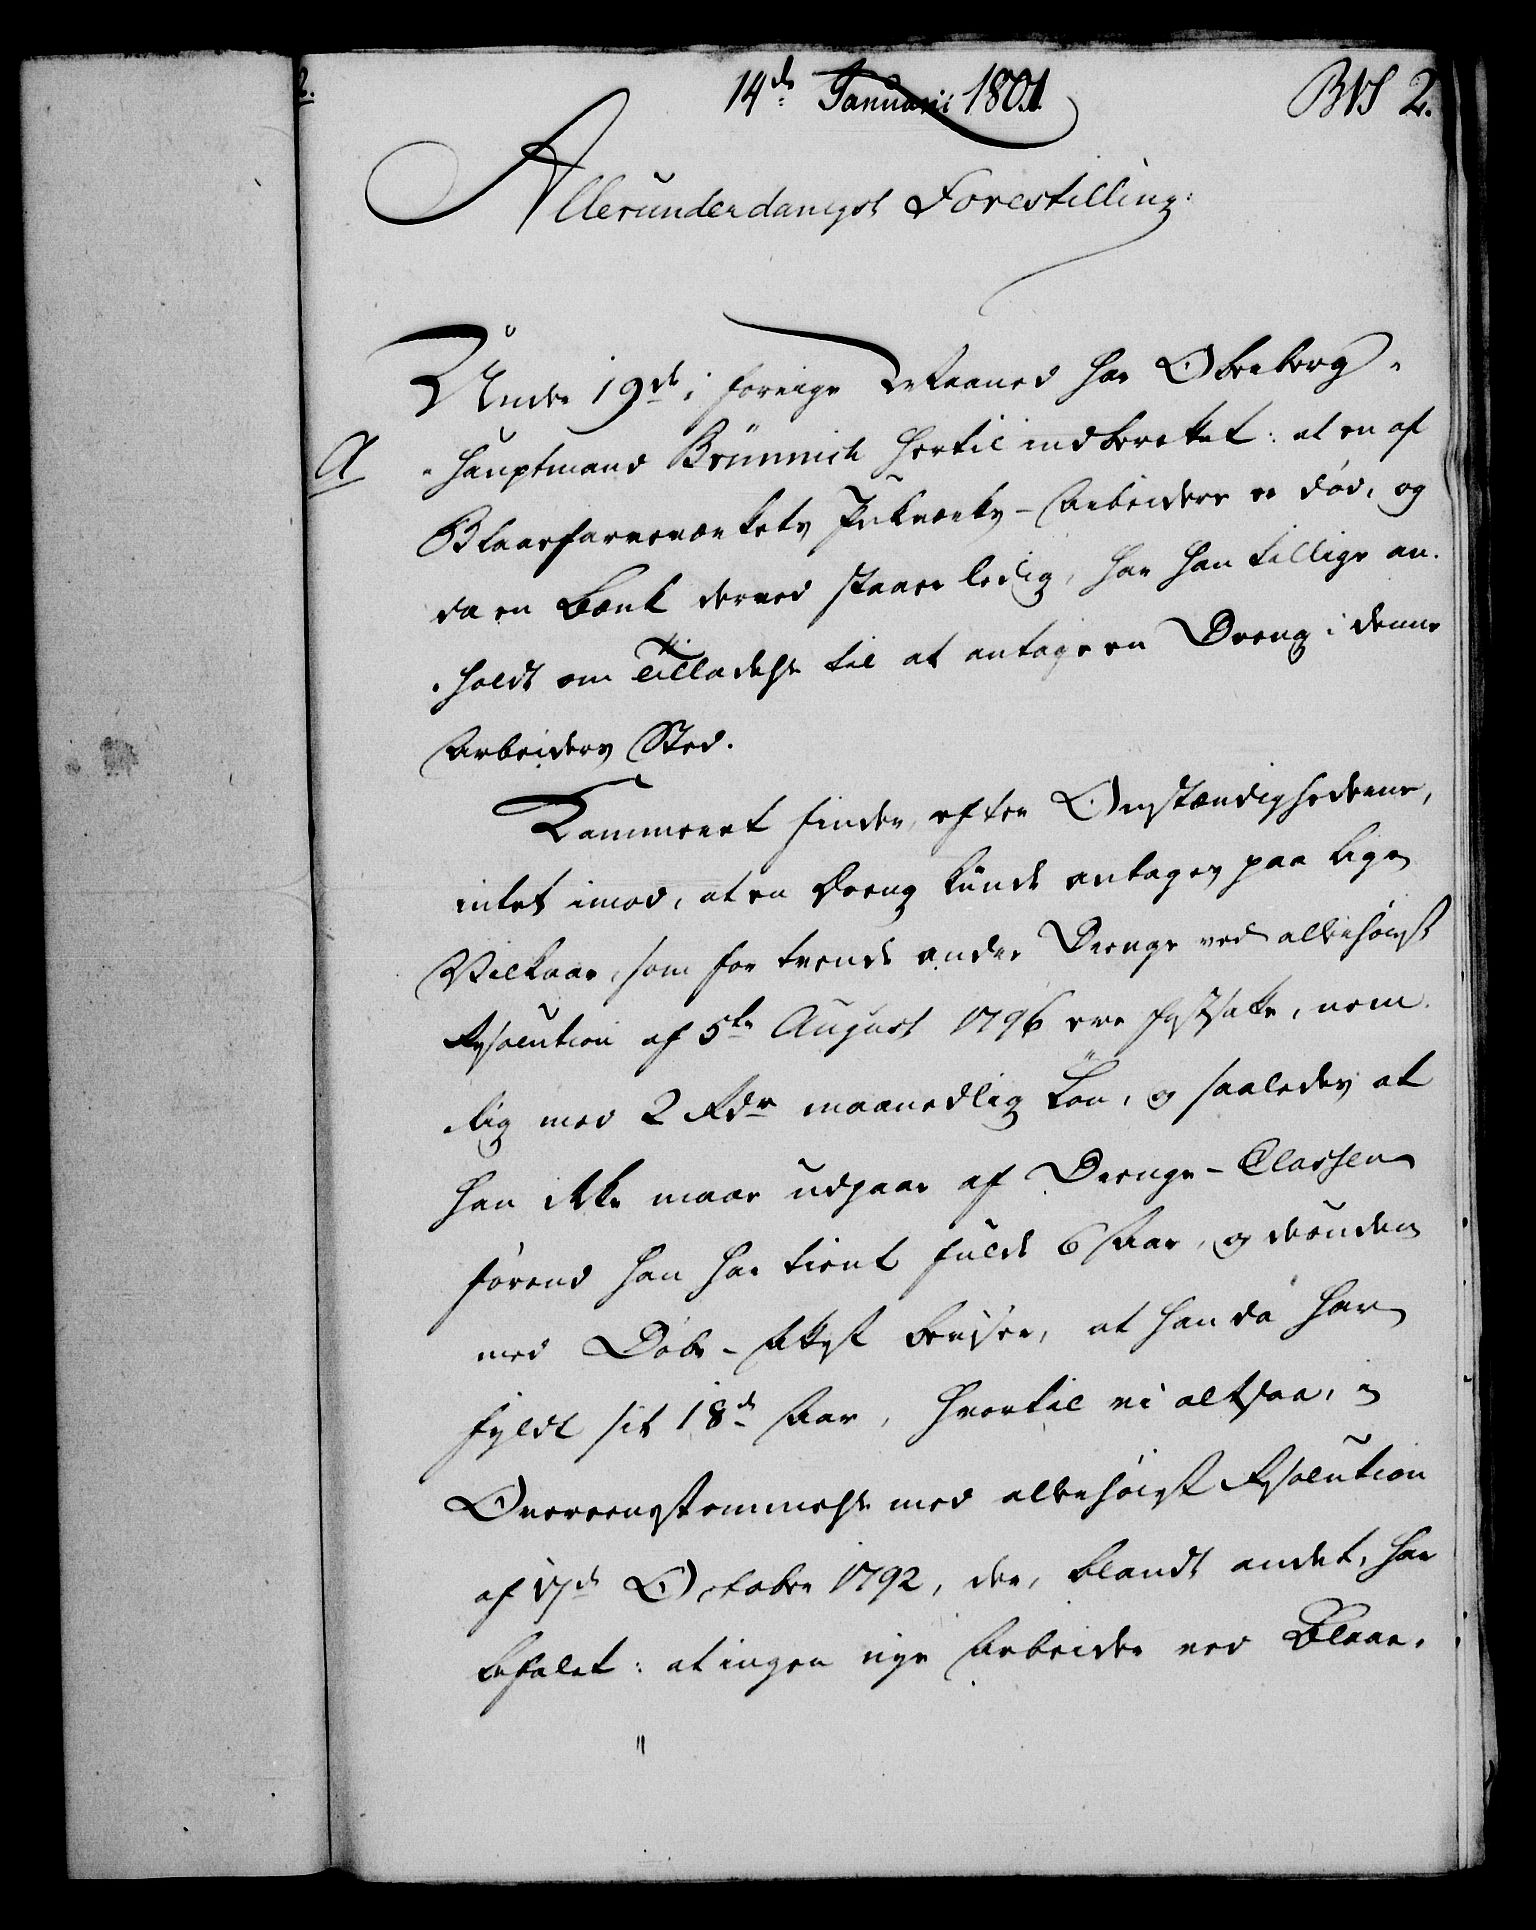 14de Januarii 1801
BNS 2.
Allerunderdanigst Forestilling:
Under 19de i forrige Maaned har Oberberg-
A
-hauptmand Brünnich hertil indberettet: at en af
Blaafarveværkets Pukværks-Arbeidere er død, og
da en Bænk derved staaer ledig, har han tillige an-
-holdt om Tilladelse til at antage en Dreng i denne
Arbeiders Sted.
Kammeret finder, efter Omstændighederne,
intet imod, at en Dreng kunde antages paa lige
Vilkaar, som for trende andre Drenge ved allerhøieste
Resolution af 5te August 1796 ere fastsatte, nem-
-lig med 2 Rdr maanedlig Løn, og saaledes at
han ikke maae udgaae af Drenge-Classen
førend han har tient fulde 6 Aar, og desuden
med Døbe-Attest beviser, at han da har
fyldt sit 18de Aar, hvortil vi altsaa, i
Overeensstemmelse med allerhøieste Resolution
af 17de October 1792, der, blandt andet, har
befalet: at ingen nye Arbeider ved Blaae-